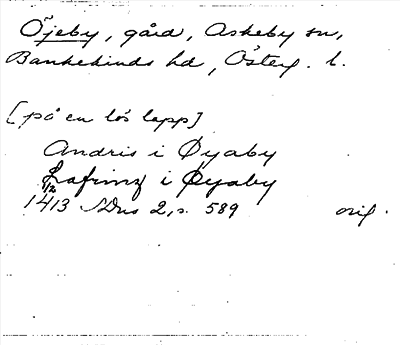 Öjeby, gård, Askeby sn,
Bankekinds hd, Österg. l.
[på en lös lapp]
Andris i Øyaby
Lafrinz i Øyaby
1/2
1413 SDns 2, s. 589 orig.